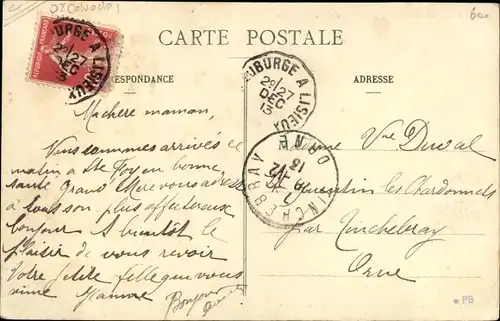 Dt Calvados
600
CARTE POSTALE
RRESPONDANCE
ADRESSE
BURGE A LISIEUX
2e/27
DEC
13
UBURGE A LISIEUX
2e/27
DEC
13
TINCHEBRAY
ORNE
Ma chère maman,
Nous sommes arrivés ce
matin à Ste Foy en bonne
santé Grand Mère vous adresse
à tous son plus affectueux
bonjour A bientôt le
plaisir de vous revoir
Votre petite fille qui vous
aime
Bonjour
Vve Duval
St Quentin les Chardonnets
par Tinchebray
Orne
PB